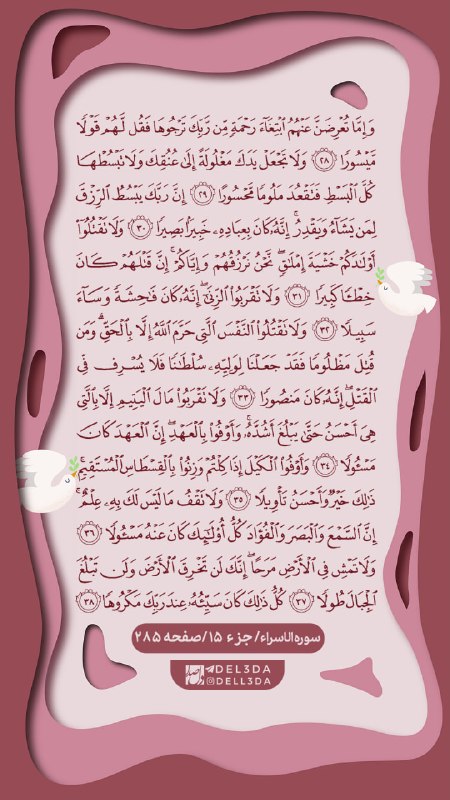 وَإِمَّا تُعْرِضَنَّ عَنْهُمُ ٱبْتِغَآءَ رَحْمَةٍ مِّن رَّبِّكَ تَرْجُوهَا فَقُل لَّهُمْ قَوْلًا
مَّيْسُورًا ﴿٢٨﴾ وَلَا تَجْعَلْ يَدَكَ مَغْلُولَةً إِلَىٰ عُنُقِكَ وَلَا تَبْسُطْهَا
كُلَّ ٱلْبَسْطِ فَتَقْعُدَ مَلُومًا مَّحْسُورًا ﴿٢٩﴾ إِنَّ رَبَّكَ يَبْسُطُ ٱلرِّزْقَ
لِمَن يَشَآءُ وَيَقْدِرُ ۚ إِنَّهُۥ كَانَ بِعِبَادِهِۦ خَبِيرًۢا بَصِيرًا ﴿٣٠﴾ وَلَا تَقْتُلُوٓا۟
أَوْلَٰدَكُمْ خَشْيَةَ إِمْلَٰقٍ ۖ نَّحْنُ نَرْزُقُهُمْ وَإِيَّاكُمْ ۚ إِنَّ قَتْلَهُمْ كَانَ
خِطْـًٔا كَبِيرًا ﴿٣١﴾ وَلَا تَقْرَبُوا۟ ٱلزِّنَىٰٓ ۖ إِنَّهُۥ كَانَ فَٰحِشَةً وَسَآءَ
سَبِيلًا ﴿٣٢﴾ وَلَا تَقْتُلُوا۟ ٱلنَّفْسَ ٱلَّتِى حَرَّمَ ٱللَّهُ إِلَّا بِٱلْحَقِّ ۗ وَمَن
قُتِلَ مَظْلُومًا فَقَدْ جَعَلْنَا لِوَلِيِّهِۦ سُلْطَٰنًا فَلَا يُسْرِف فِّى
ٱلْقَتْلِ ۖ إِنَّهُۥ كَانَ مَنصُورًا ﴿٣٣﴾ وَلَا تَقْرَبُوا۟ مَالَ ٱلْيَتِيمِ إِلَّا بِٱلَّتِى
هِىَ أَحْسَنُ حَتَّىٰ يَبْلُغَ أَشُدَّهُۥ ۚ وَأَوْفُوا۟ بِٱلْعَهْدِ ۖ إِنَّ ٱلْعَهْدَ كَانَ
مَسْـُٔولًا ﴿٣٤﴾ وَأَوْفُوا۟ ٱلْكَيْلَ إِذَا كِلْتُمْ وَزِنُوا۟ بِٱلْقِسْطَاسِ ٱلْمُسْتَقِيمِ ۚ
ذَٰلِكَ خَيْرٌ وَأَحْسَنُ تَأْوِيلًا ﴿٣٥﴾ وَلَا تَقْفُ مَا لَيْسَ لَكَ بِهِۦ عِلْمٌ ۚ
إِنَّ ٱلسَّمْعَ وَٱلْبَصَرَ وَٱلْفُؤَادَ كُلُّ أُو۟لَٰٓئِكَ كَانَ عَنْهُ مَسْـُٔولًا ﴿٣٦﴾
وَلَا تَمْشِ فِى ٱلْأَرْضِ مَرَحًا ۖ إِنَّكَ لَن تَخْرِقَ ٱلْأَرْضَ وَلَن تَبْلُغَ
ٱلْجِبَالَ طُولًا ﴿٣٧﴾ كُلُّ ذَٰلِكَ كَانَ سَيِّئُهُۥ عِندَ رَبِّكَ مَكْرُوهًا ﴿٣٨﴾
سوره الاسراء/ جزء ۱۵/صفحه ۲۸۵
DEL3DA
DELL3DA